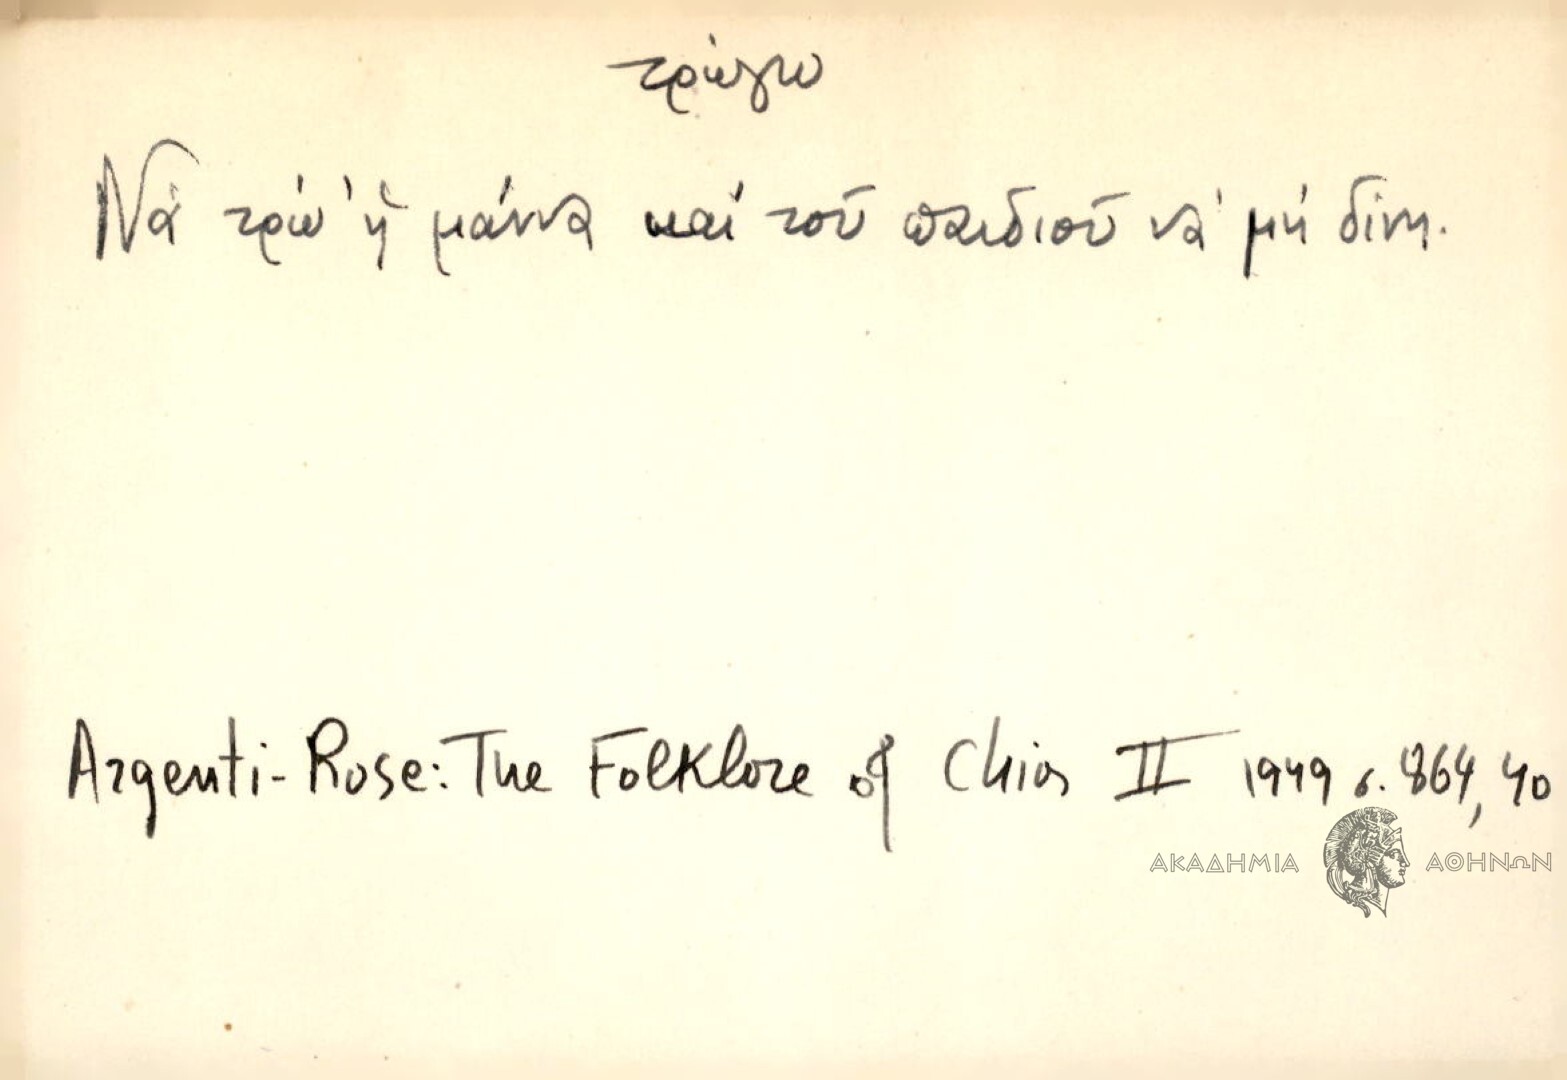 τρώγω
Νὰ τρώ' ἡ μάννα καὶ τοῦ παιδιοῦ νὰ μὴ δίνη.
Argenti-Rose: The Folklore of Chios II 1949 σ. 864, 40
ΑΚΑΔΗΜΙΑ ΑΘΗΝΩΝ